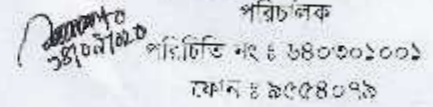 পরিচালক
পরিচিতি নং ঃ ৬৪০৩০১০০১
ফোন ঃ ৯৫৫৪০৭৯